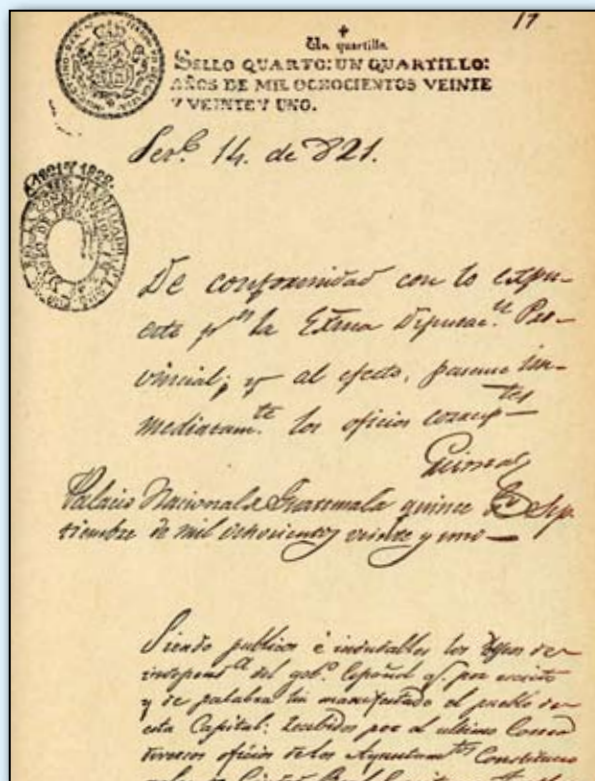 17
Un quartillo
SELLO QUARTO: UN QUARTILLO:
AÑOS DE MIL OCHOCIENTOS VEINTE
Y VEINTE Y UNO.
14. de 821.
De conformidad con lo expu-
esto pr la Exma Diputacn Pro-
vincial; y al efecto, pasense in-
mediatamte los oficios
Palacio Nacional de Guatemala quince de Sep
tiembre de mil ochocientos veinte y uno—
Siendo publicos è indudables los de
independa del gobo Español qe por escrito
y de palabra ha manifestado el pueblo de
esta Capital: recibidos por el ultimo
diversos oficios de los Ayuntamtos Constitucio